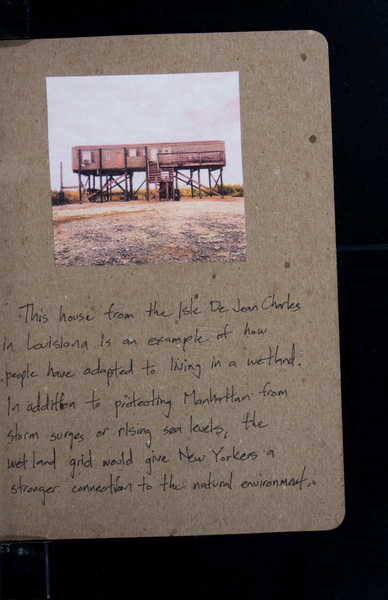 This house from the Isle De Jean Charles
in Louisiana is an example of how
people have adapted to living in a wetland.
In addition to protecting Manhattan from
storm surges or rising sea levels, the
wetland grid would give New Yorkers a
stronger connection to the natural environment..